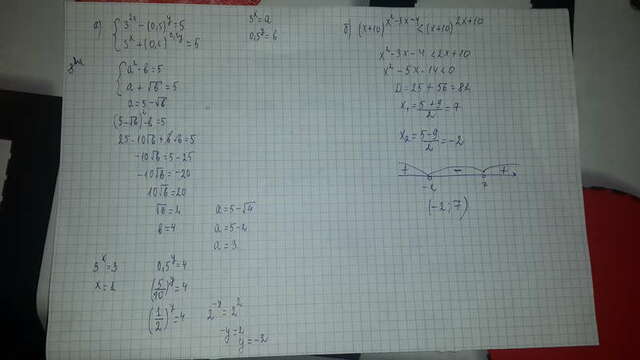 a) { 3^2x - (0,5)^y = 5
3^x + (0,5)^y/2 = 5
3^x = a
0,5^y = b
{ a² - b = 5
a + √b = 5
a = 5 - √b
(5 - √b)² - b = 5
25 - 10√b + b - b = 5
-10√b = 5 - 25
-10√b = -20
10√b = 20
√b = 2
b = 4
a = 5 - √4
a = 5 - 2
a = 3
3^x = 3
x = 1
0,5^y = 4
(5/10)^y = 4
(1/2)^y = 4
2^-y = 2²
-y = 2
y = -2
б) (x+10)^x²-3x-4 < (x+10)^2x+10
x² - 3x - 4 < 2x + 10
x² - 5x - 14 < 0
x₁ = 5+9/2 = 7
x₂ = 5-9/2 = -2
+ - +
-2 7 x
(-2, 7)